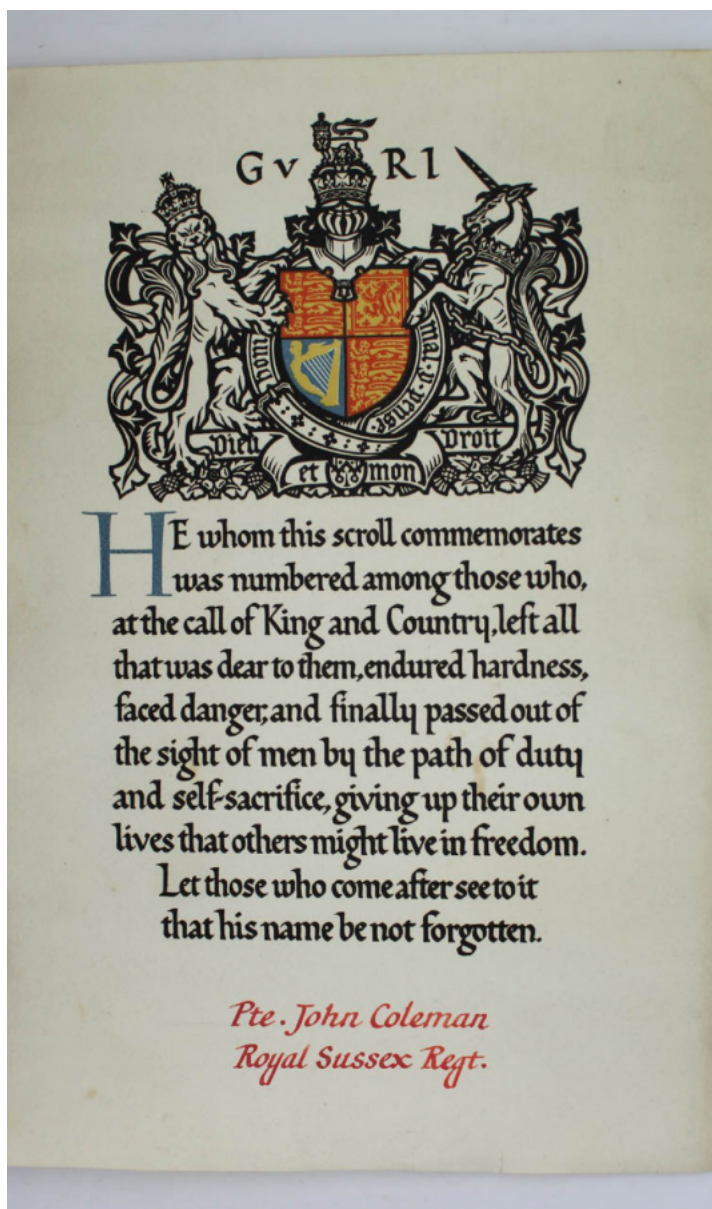 GvRI
honi mal·y·pense
Dieu et mon Droit
HE whom this scroll commemorates
was numbered among those who,
at the call of King and Country, left all
that was dear to them, endured hardness,
faced danger, and finally passed out of
the sight of men by the path of duty
and self-sacrifice, giving up their own
lives that others might live in freedom.
Let those who come after see to it
that his name be not forgotten.
Pte. John Coleman
Royal Sussex Regt.